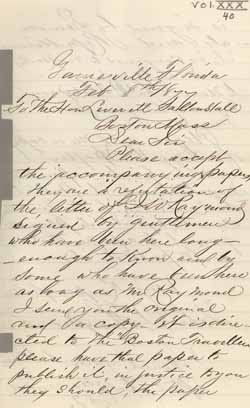 VOL. XXX
40
Gainesville Florida
Feb 8th
To The Hon Leverett Saltonstall
Boston Mass
Dear Sir
Please accept
the accompanying papers
they are a refutation of
the letter of Raymond
signed by gentlemen
who have been here long
enough to know and by
some who have been here
as long as Mr Raymond
I send you the original
and a copy it is dire
cted to the Boston Traveller
please have that paper to
publish it in justice to you
they should, the paper